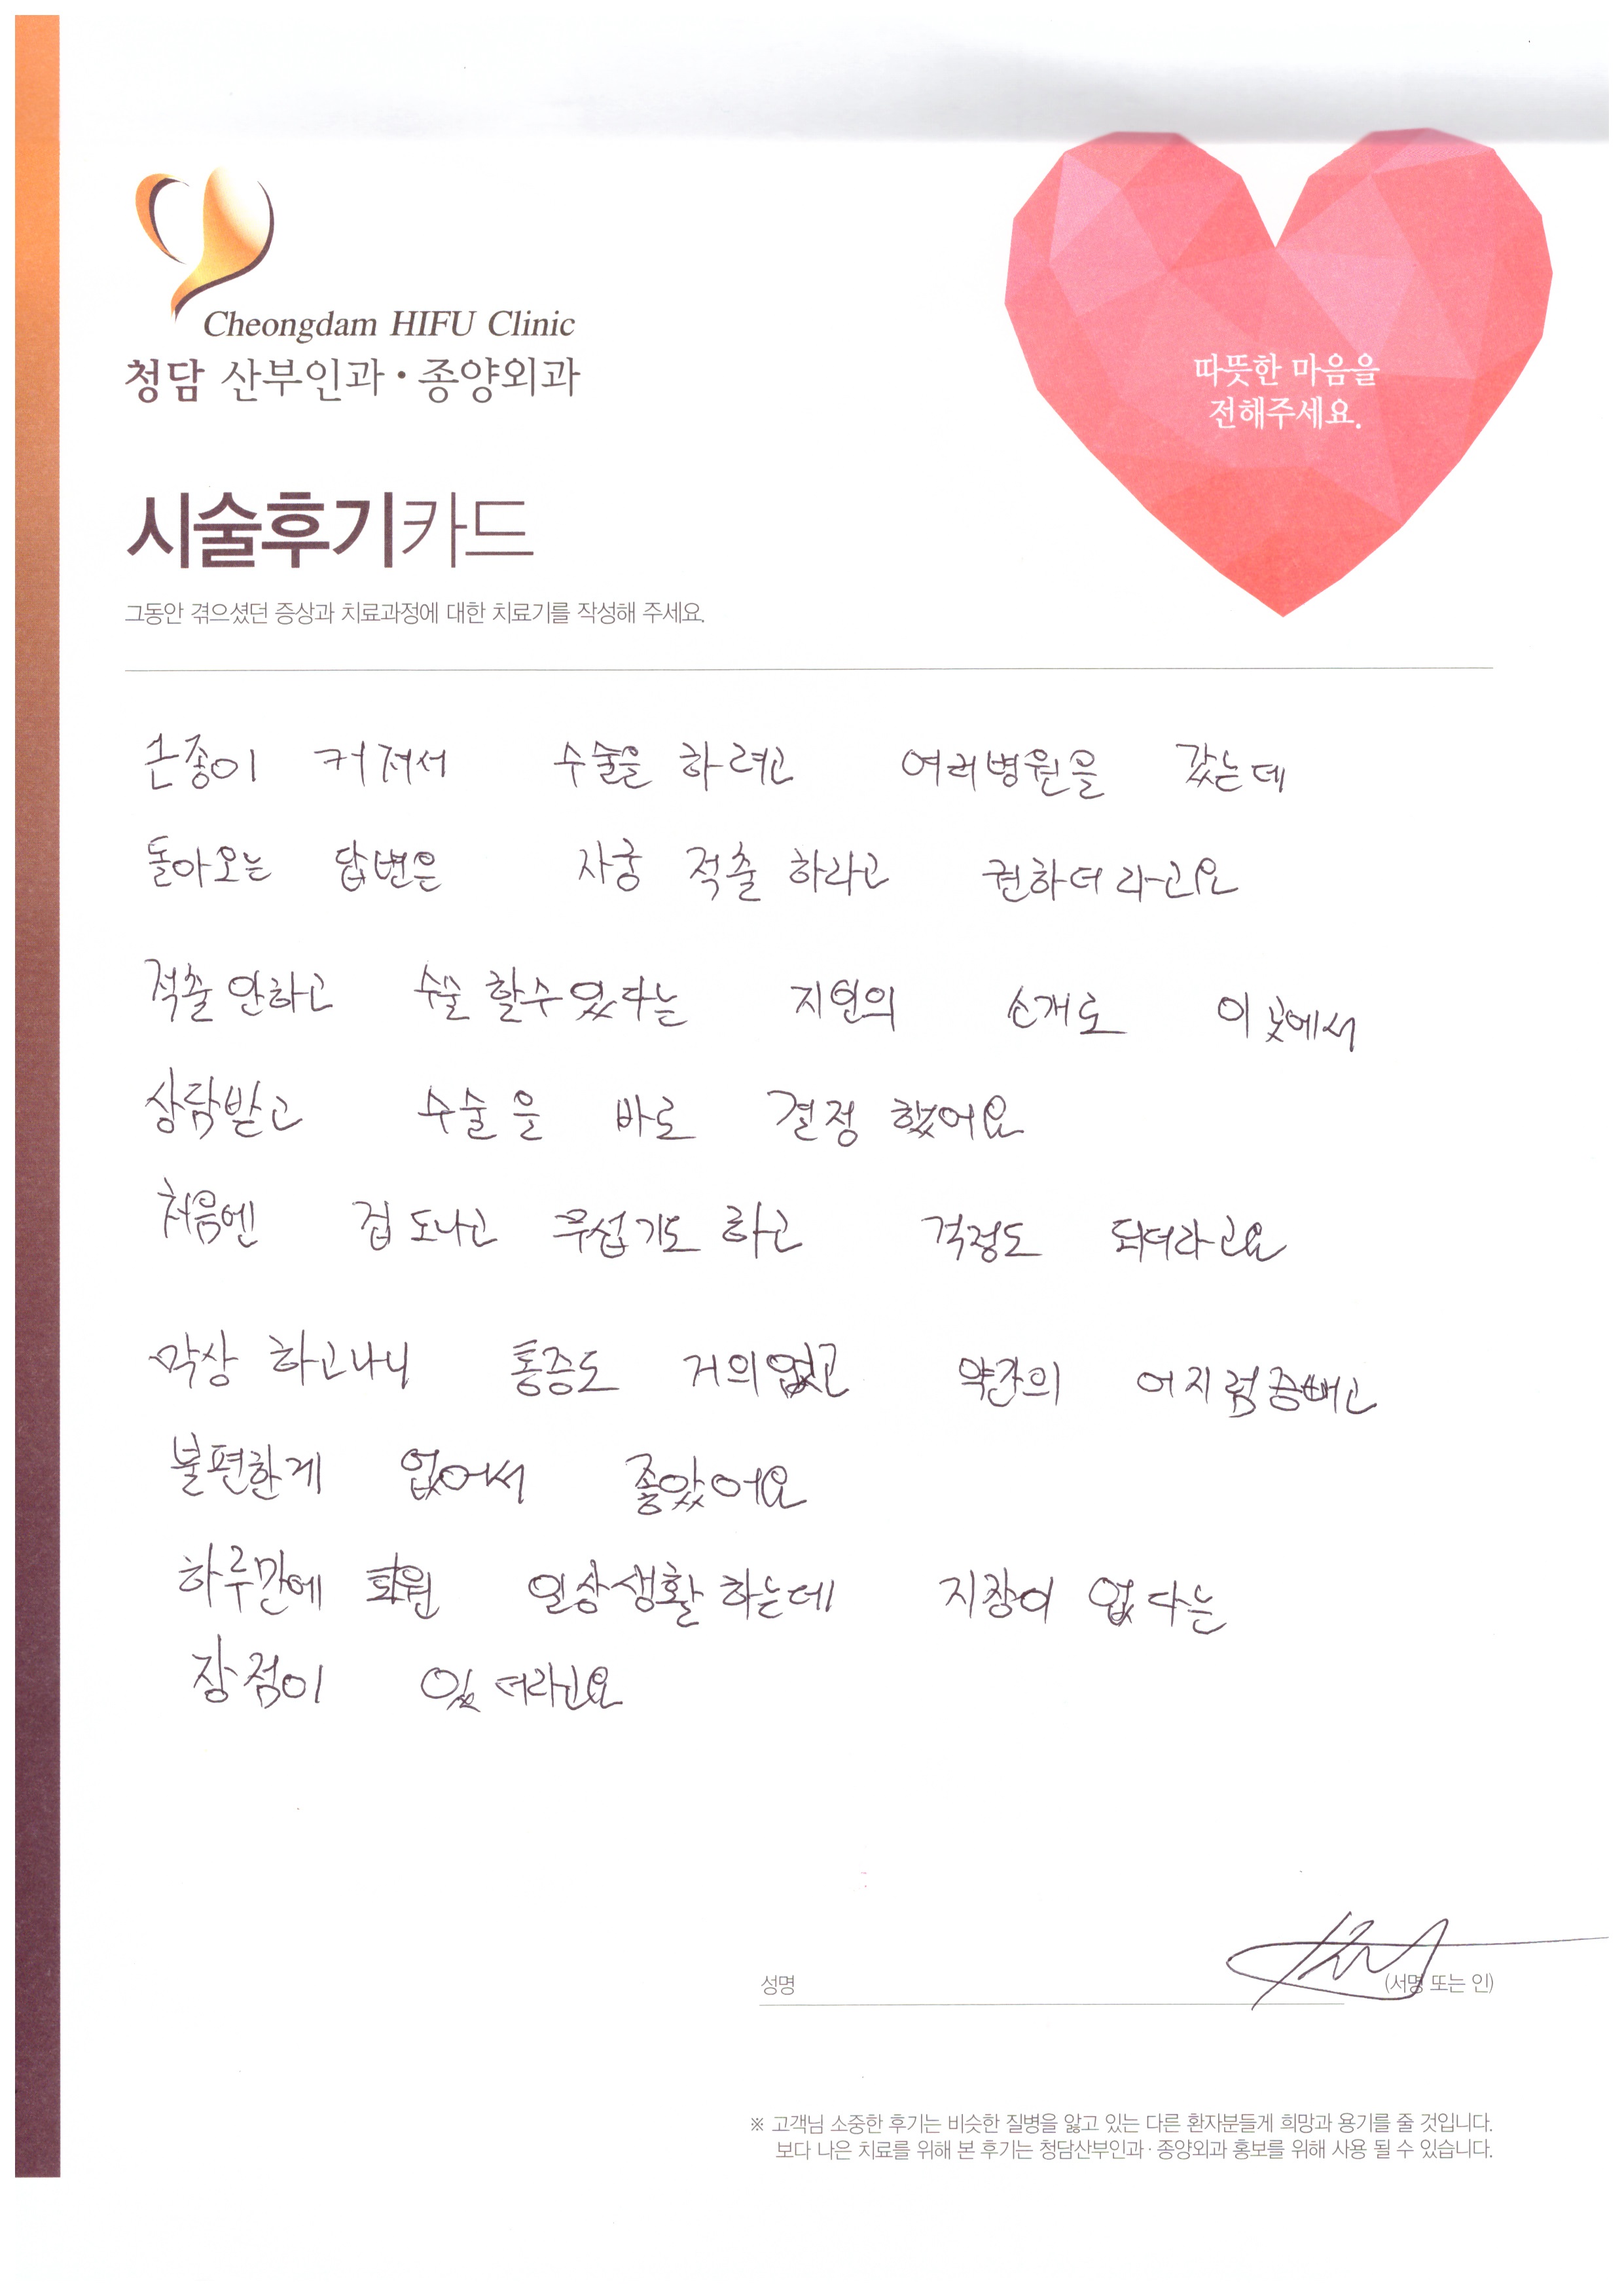 Cheongdam HIFU Clinic
청담 산부인과·종양외과
따뜻한 마음을
전해주세요.
시술후기카드
그동안 겪으셨던 증상과 치료과정에 대한 치료기를 작성해 주세요.
근종이 커져서 수술을 하려고 여러병원을 갔는데
돌아오는 답변은 자궁 적출 하라고 권하더라고요
적출 안하고 수술 할수 있다는 지인의 소개로 이곳에서
상담받고 수술을 바로 결정 했어요
처음엔 겁도나고 무섭기도 하고 걱정도 되더라고요
막상 하고나니 통증도 거의없고 약간의 어지럼증빼고
불편한게 없어서 좋았어요
하루만에 퇴원 일상생활 하는데 지장이 없다는
장점이 있더라고요
성명 (서명 또는 인)
※ 고객님 소중한 후기는 비슷한 질병을 앓고 있는 다른 환자분들게 희망과 용기를 줄 것입니다.
보다 나은 치료를 위해 본 후기는 청담산부인과·종양외과 홍보를 위해 사용 될 수 있습니다.